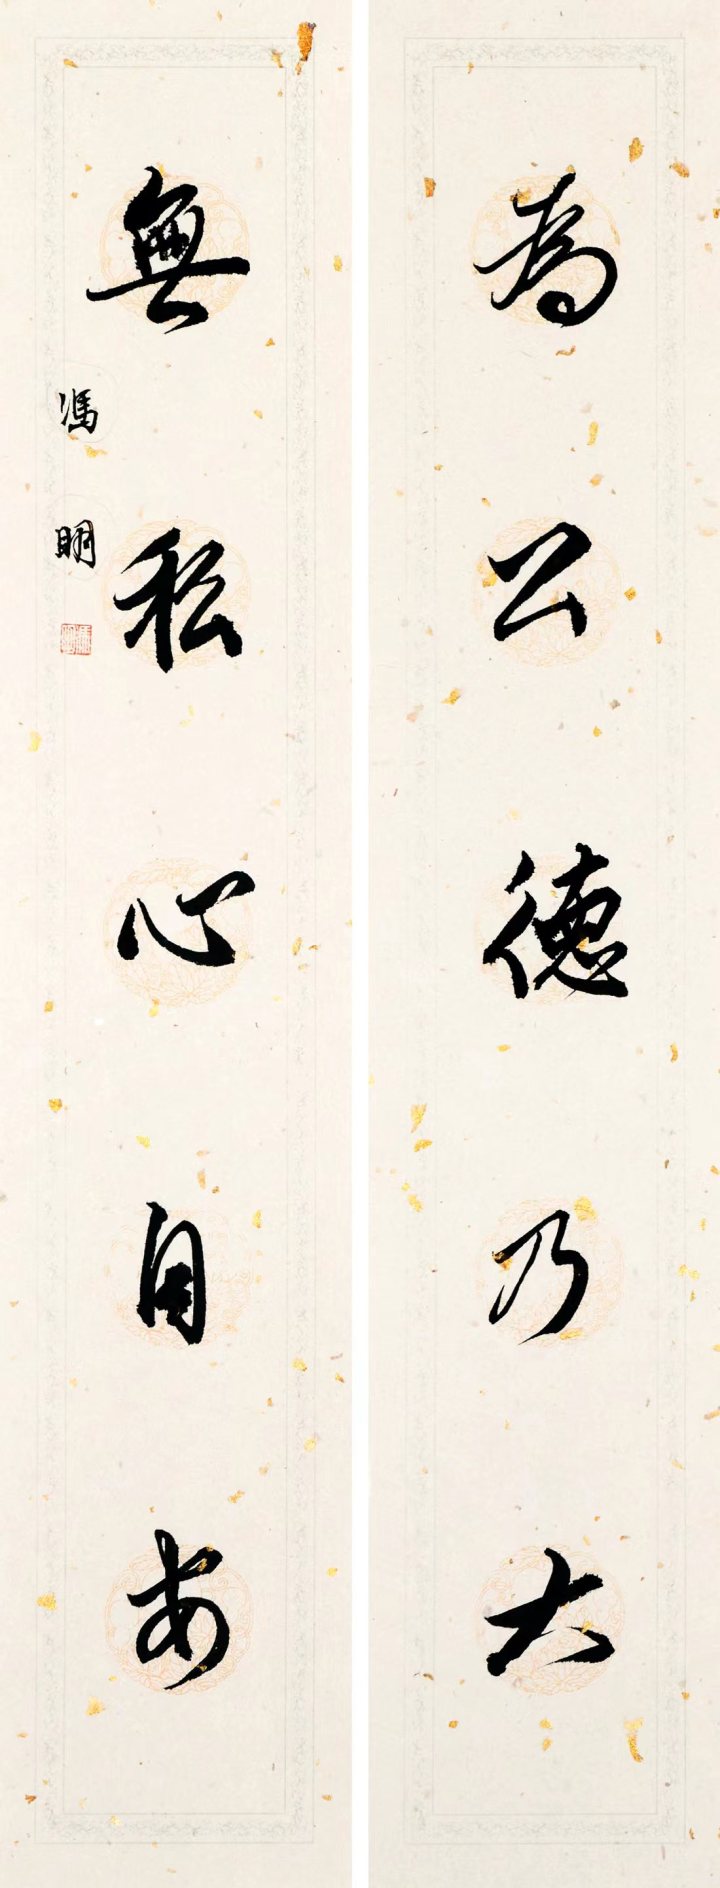 為公德乃大
無私心自安
馮明